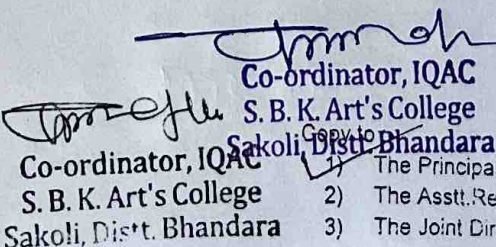 Co-ordinator, IQAC
S. B. K. Art's College
Sakoli, Distt. Bhandara
Co-ordinator, IQAC
S. B. K. Art's College
Sakoli, Dis't. Bhandara
Copy to
1) The Principa
2) The Asstt.Re
3) The Joint Dir